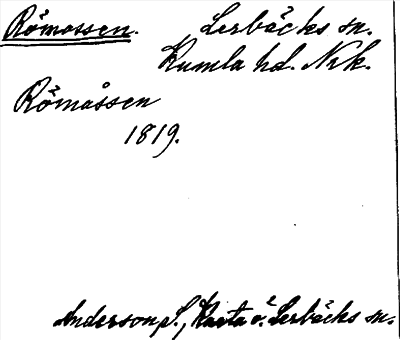 Römossen. Lerbäcks sn.
Kumla hd. Nrk.
Römåssen
1819.
Anderson, S., Karta ö. Lerbäcks sn.